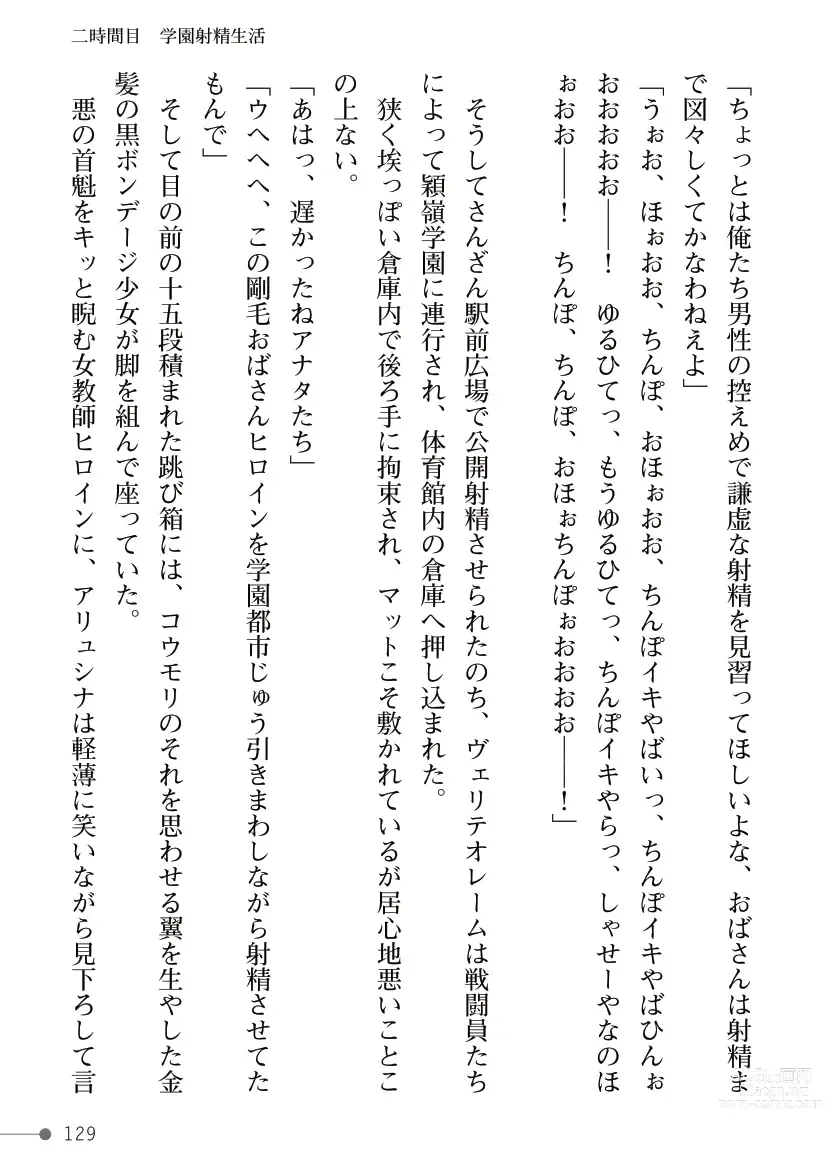 二時間目　学園射精生活
「ちょっとは俺たち男性の控えめで謙虚な射精を見習ってほしいよな、おばさんは射精ま
で図々しくてかなわねえよ」
「うぉお、ほぉおお、ちんぽ、おほぉおお、ちんぽイキやばいっ、ちんぽイキやばひんぉ
おおおおお――！　ゆるひてっ、もうゆるひてっ、ちんぽイキやらっ、しゃせーやなのほ
ぉおお――！　ちんぽ、ちんぽ、おほぉちんぽぉおおおお――！」
そうしてさんざん駅前広場で公開射精させられたのち、ヴェリテオレームは戦闘員たち
によって穎嶺学園に連行され、体育館内の倉庫へ押し込まれた。
狭く埃っぽい倉庫内で後ろ手に拘束され、マットこそ敷かれているが居心地悪いことこ
の上ない。
「あはっ、遅かったねアナタたち」
「ウへへへ、この剛毛おばさんヒロインを学園都市じゅう引きまわしながら射精させてた
もんで」
そして目の前の十五段積まれた跳び箱には、コウモリのそれを思わせる翼を生やした金
髪の黒ボンデージ少女が脚を組んで座っていた。
悪の首魁をキッと睨む女教師ヒロインに、アリュシナは軽薄に笑いながら見下ろして言
129